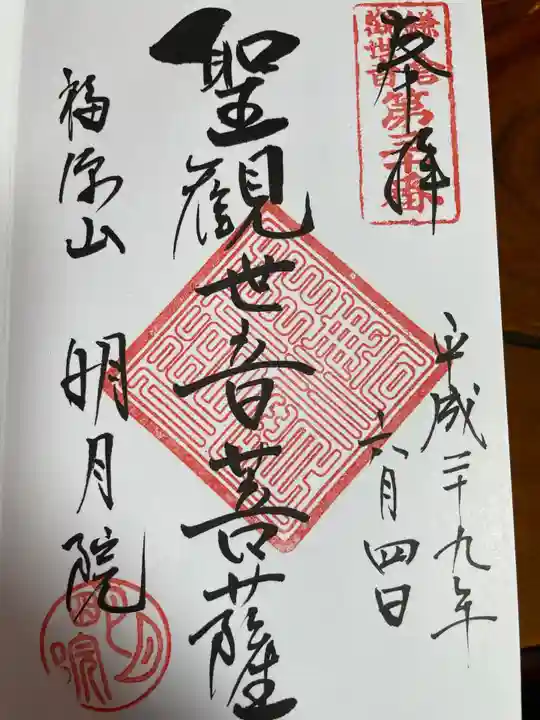 奉拝
鎌倉
観世音
第三十番
平成二十九年
六月四日
聖観世音菩薩
福源山 明月院